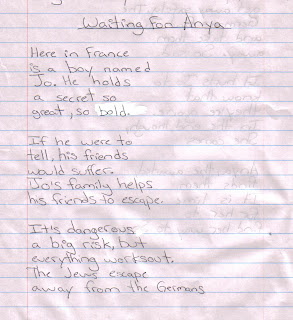 Waiting for Anya
Here in France
is a boy named
Jo. He holds
a secret so
great, so bold.
If he were to
tell, his friends
would suffer.
Jo's family helps
his friends to escape.
It's dangerous
a big risk, but
everything worksout.
The Jews escape
away from the Germans